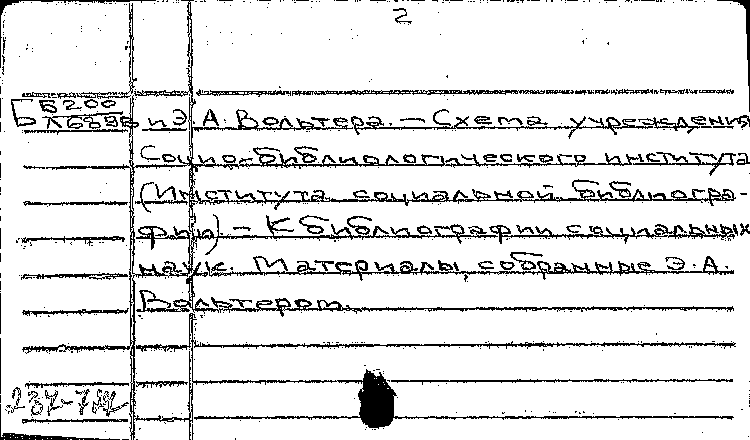 2
Б200
и Э. А. Вольтера. — Схема учреждения
Социо-библиологического института
(Института социальной библиогра-
фии) — К библиографии социальных
наук. Материалы, собранные Э. А.
Вольтером.